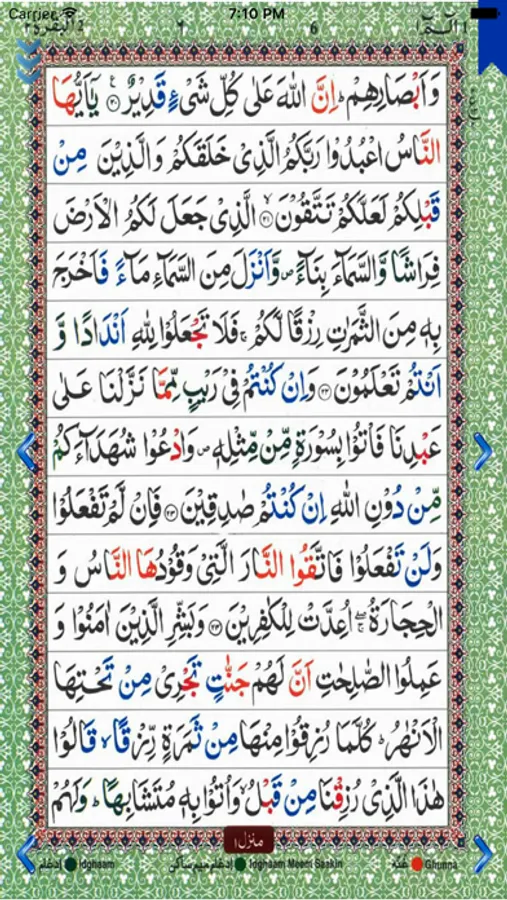 Carrier 7:10 PM
البقرة ٢ ٦ 6 الٓمّٓ ١
وَاَبْصَارِهِمْ ؕ اِنَّ اللّٰهَ عَلٰى كُلِّ شَیْءٍ قَدِیْرٌ ۟۠ یٰۤاَیُّهَا
النَّاسُ اعْبُدُوْا رَبَّكُمُ الَّذِیْ خَلَقَكُمْ وَالَّذِیْنَ مِنْ
قَبْلِكُمْ لَعَلَّكُمْ تَتَّقُوْنَ ۙ۝۲۱ الَّذِیْ جَعَلَ لَكُمُ الْاَرْضَ
فِرَاشًا وَّالسَّمَآءَ بِنَآءً ۪ وَّاَنْزَلَ مِنَ السَّمَآءِ مَآءً فَاَخْرَجَ
بِهٖ مِنَ الثَّمَرٰتِ رِزْقًا لَّكُمْ ۚ فَلَا تَجْعَلُوْا لِلّٰهِ اَنْدَادًا وَّ
اَنْتُمْ تَعْلَمُوْنَ ۝۲۲ وَاِنْ كُنْتُمْ فِیْ رَیْبٍ مِّمَّا نَزَّلْنَا عَلٰى
عَبْدِنَا فَاْتُوْا بِسُوْرَةٍ مِّنْ مِّثْلِهٖ ۪ وَادْعُوْا شُهَدَآءَكُمْ
مِّنْ دُوْنِ اللّٰهِ اِنْ كُنْتُمْ صٰدِقِیْنَ ۝۲۳ فَاِنْ لَّمْ تَفْعَلُوْا
وَلَنْ تَفْعَلُوْا فَاتَّقُوا النَّارَ الَّتِیْ وَقُوْدُهَا النَّاسُ وَ
الْحِجَارَةُ ۖۚ اُعِدَّتْ لِلْكٰفِرِیْنَ ۝۲۴ وَبَشِّرِ الَّذِیْنَ اٰمَنُوْا وَ
عَمِلُوا الصّٰلِحٰتِ اَنَّ لَهُمْ جَنّٰتٍ تَجْرِیْ مِنْ تَحْتِهَا
الْاَنْهٰرُ ؕ كُلَّمَا رُزِقُوْا مِنْهَا مِنْ ثَمَرَةٍ رِّزْقًا ۙ قَالُوْا
هٰذَا الَّذِیْ رُزِقْنَا مِنْ قَبْلُ ۙ وَاُتُوْا بِهٖ مُتَشَابِهًا ؕ وَلَهُمْ
منزل ۱
إدغام Idghaam إدغام ميم ساكن Idghaam Meem Saakin غنه Ghunna